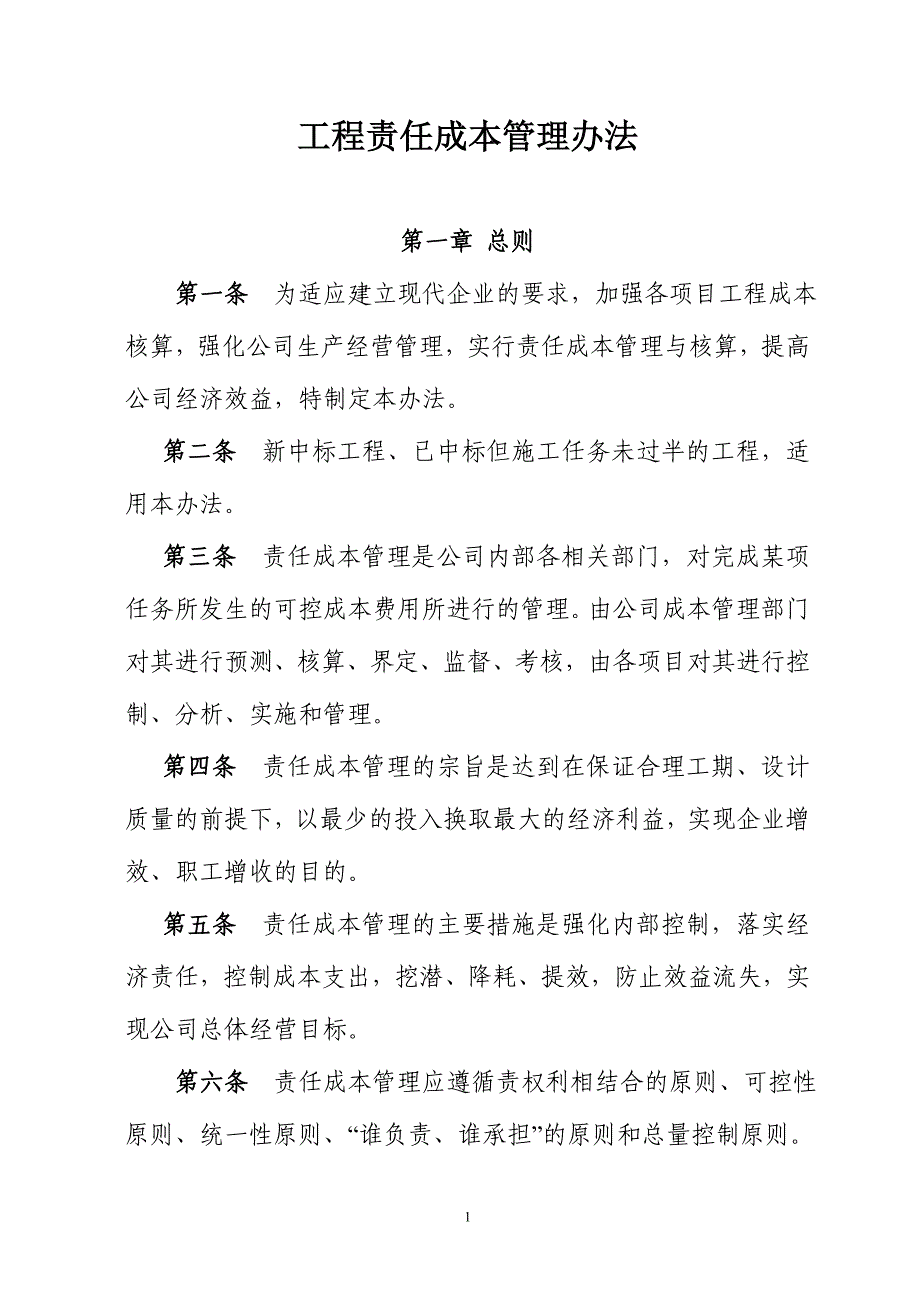 工程责任成本管理办法
第一章 总则
第一条 为适应建立现代企业的要求，加强各项目工程成本
核算，强化公司生产经营管理，实行责任成本管理与核算，提高
公司经济效益，特制定本办法。
第二条 新中标工程、已中标但施工任务未过半的工程，适
用本办法。
第三条 责任成本管理是公司内部各相关部门，对完成某项
任务所发生的可控成本费用所进行的管理。由公司成本管理部门
对其进行预测、核算、界定、监督、考核，由各项目对其进行控
制、分析、实施和管理。
第四条 责任成本管理的宗旨是达到在保证合理工期、设计
质量的前提下，以最少的投入换取最大的经济利益，实现企业增
效、职工增收的目的。
第五条 责任成本管理的主要措施是强化内部控制，落实经
济责任，控制成本支出，挖潜、降耗、提效，防止效益流失，实
现公司总体经营目标。
第六条 责任成本管理应遵循责权利相结合的原则、可控性
原则、统一性原则、“谁负责、谁承担”的原则和总量控制原则。
1